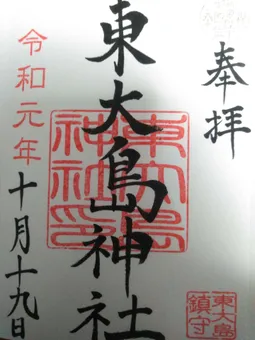 奉拝
東大島神社
東大島
神社印
令和元年
十月十九日
東大島
鎮守